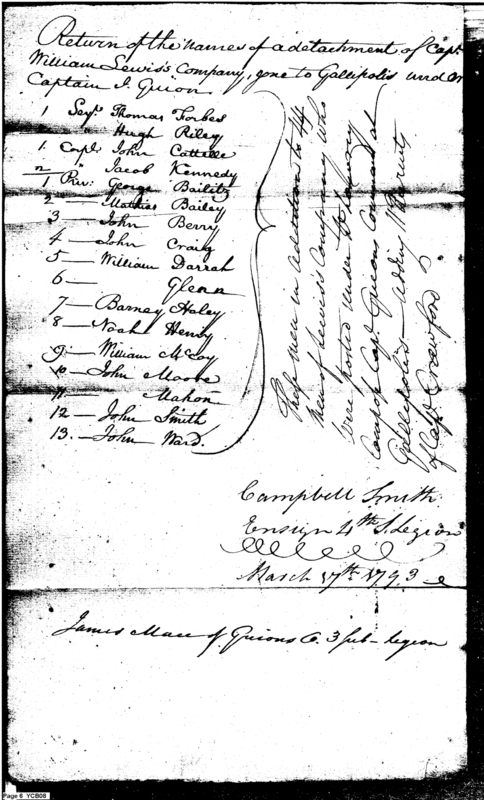 Return of the names of a detachment of Capt.
William Lewis's Company, gone to Gallipolis und or
Captain I. Guion
1 Serjt. Thomas Forbes
" Hugh Riley
1. Corpl. John Cottelle
2 " Jacob Kennedy
1 Priv: George Bailitz
2 — Mathias Bailey
3 — John Berry
4 — John Craig
5 — William Darrah
6 — Glenn
7 — Barney Haley
8 — Noah Henry
9 — William McCoy
10 — John Moore
11 — Mahon
12 — John Smith
13. — John Ward.
These men in addition to 44
men of Lewis's Company who
were posted under
comp of Capt. Guions Command at
Gallipolis — adding 1
of Capt. Crawford
Campbell Smith
Ensign 4th S. Legion
March 17th 1793
James Mace of Guions C. 3 sub-legion
Page 6 YCB08